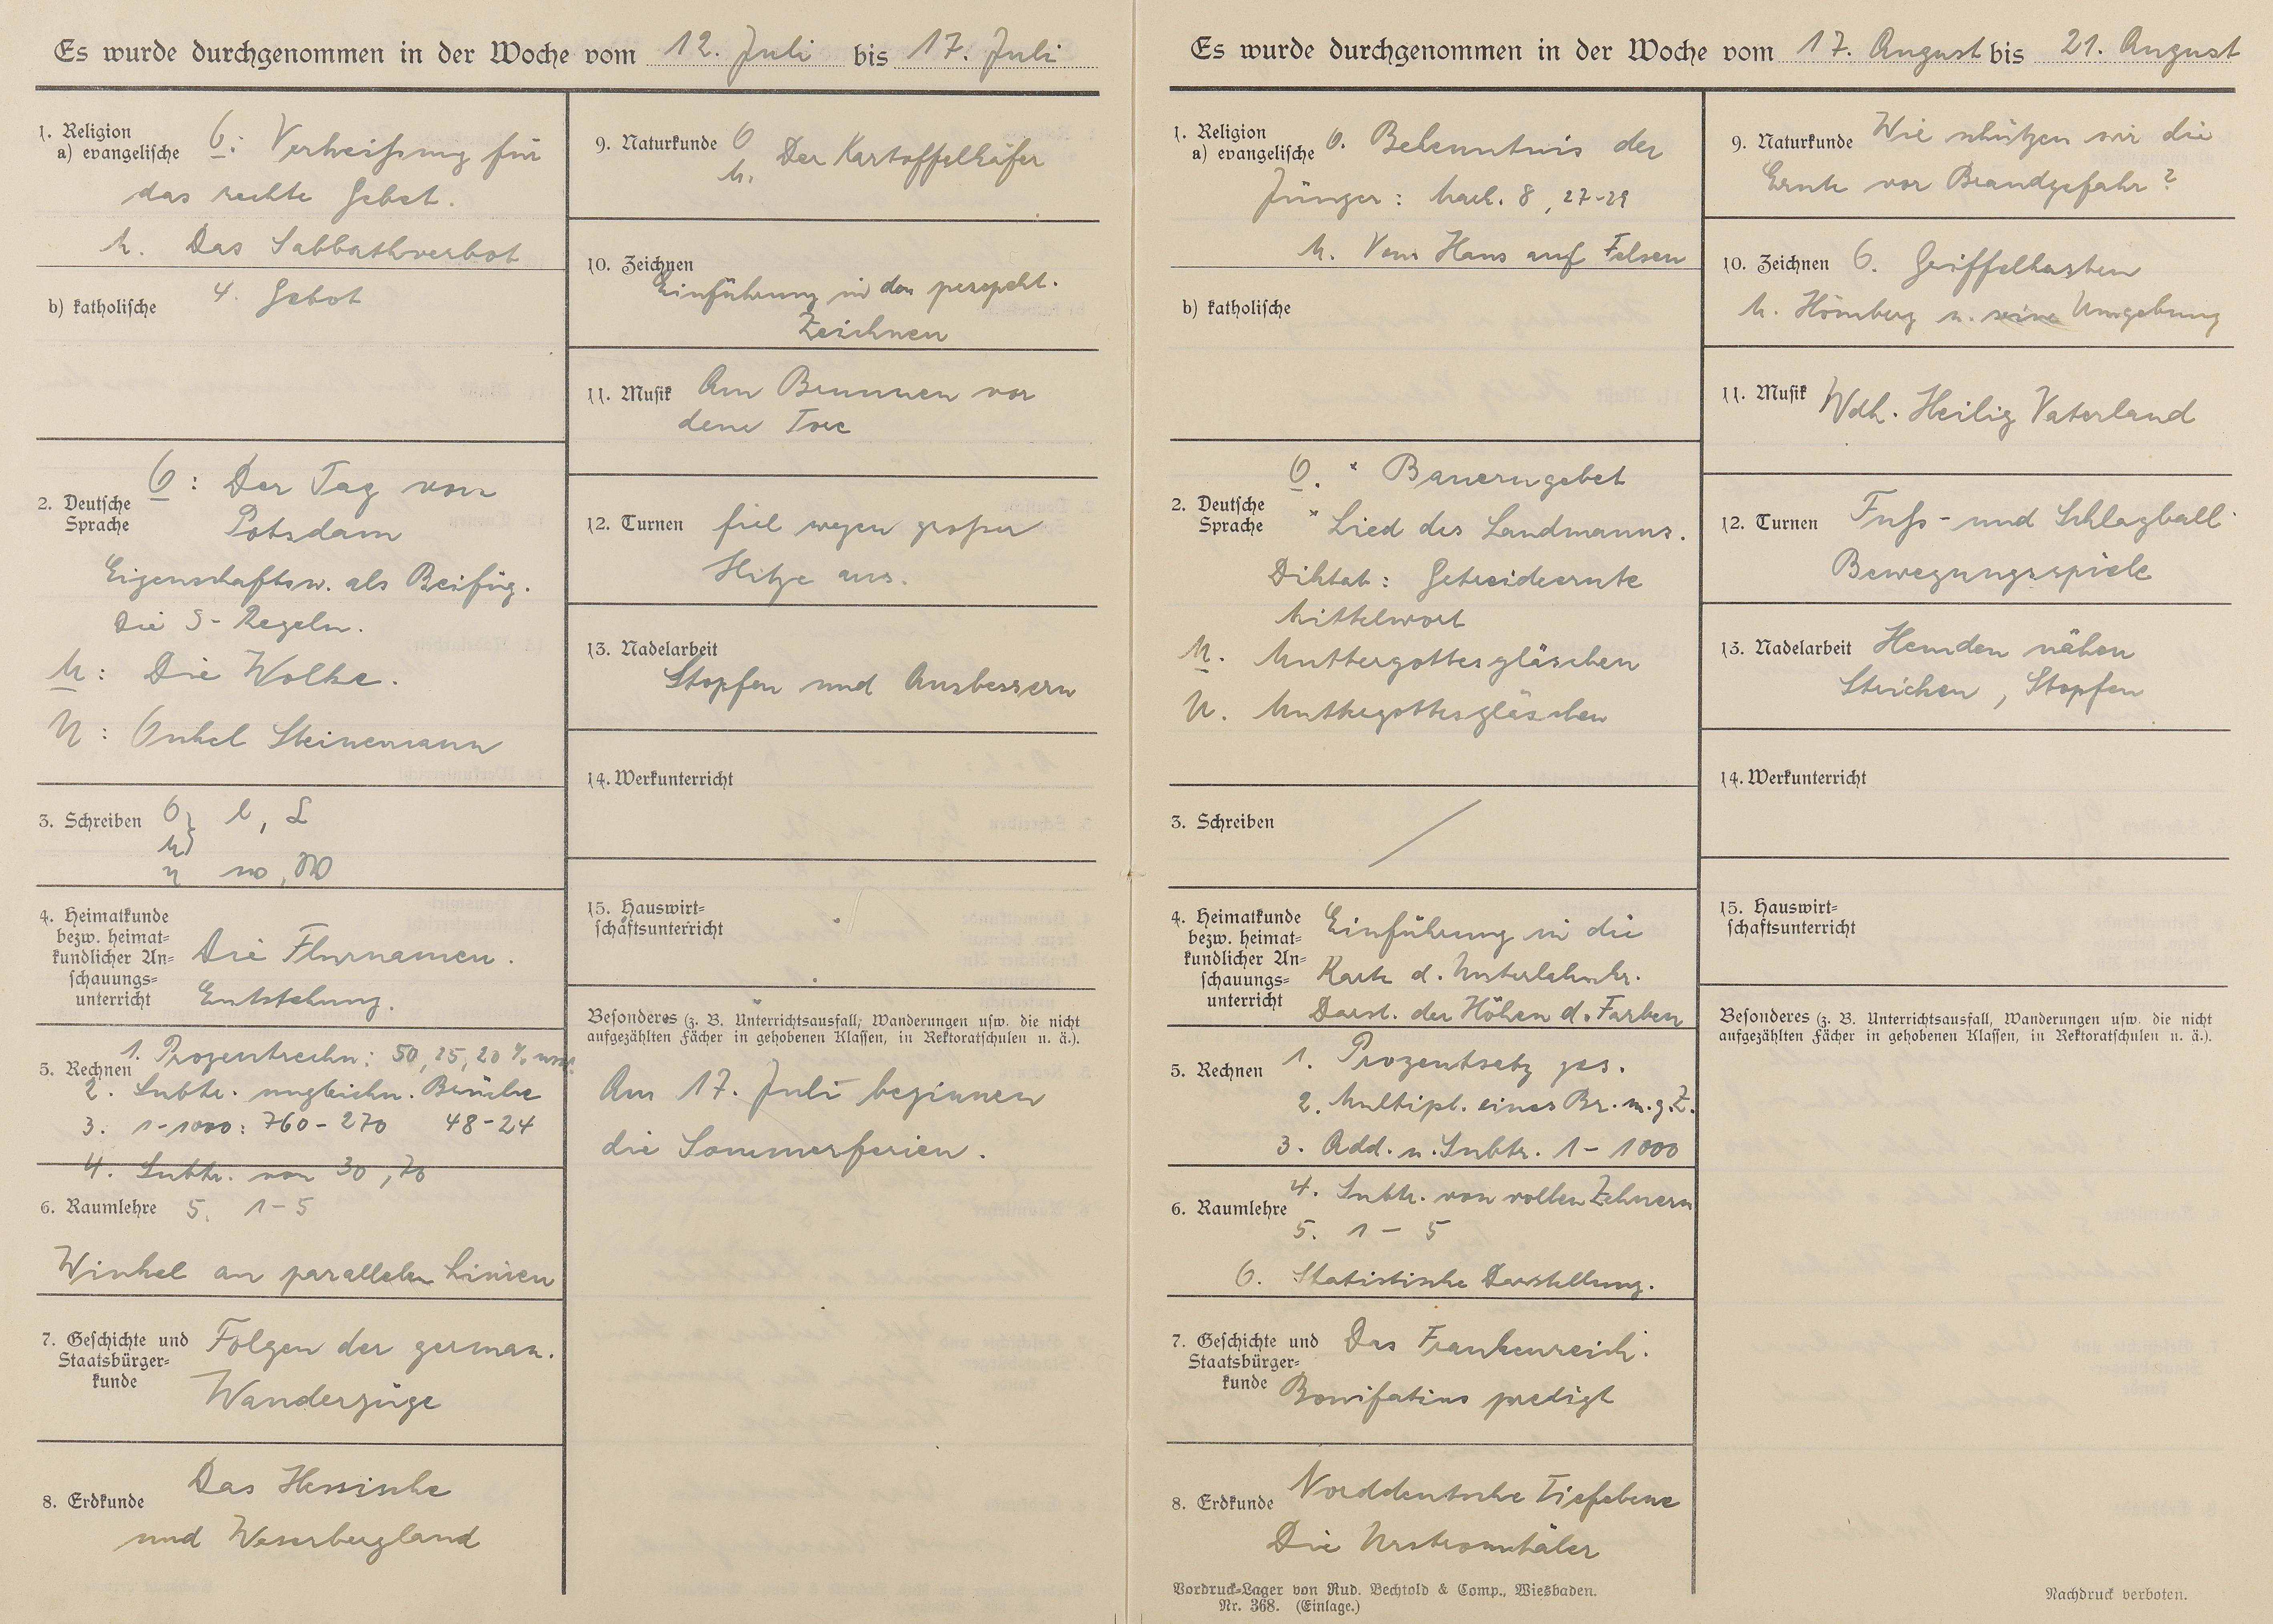 Es wurde durchgenommen in der Woche vom 12. Juli bis 17. Juli
1. Religion
a) evangelische O: Verheißung für
das rechte Gebet.
M. Das Sabbathverbot
b) katholische 4. Gebot
2. Deutsche Sprache
O: Der Tag von
Potsdam
Eigenschaftsw. als Beifüg.
Die S-Regeln.
M: Die Wolke.
U: Onkel Steinemann
3. Schreiben O} l, L
M}
U w, W
4. Heimatkunde
bezw. heimat=
kundlicher An=
schauungs=
unterricht
Die Flurnamen.
Entstehung.
5. Rechnen 1. Prozentrechn: 50, 25, 20 % usw.
2. Subtr. ungleichn. Brüche
3. 1-1000: 760-270 48-24
4. Subtr. von 30, 70
6. Raumlehre 5. 1-5
Winkel an parallelen Linien
7. Geschichte und
Staatsbürger=
kunde
Folgen der german.
Wanderzüge
8. Erdkunde
Das Hessische
und Weserbergland
9. Naturkunde O
M. Der Kartoffelkäfer
10. Zeichnen
Einführung in das perspekt.
Zeichnen
11. Musik Am Brunnen vor
dem Tore
12. Turnen fiel wegen großer
Hitze aus.
13. Nadelarbeit
Stopfen und Ausbessern
14. Werkunterricht
15. Hauswirt=
schaftsunterricht
Besonderes (z. B. Unterrichtsausfall, Wanderungen usw. die nicht
aufgezählten Fächer in gehobenen Klassen, in Rektoratschulen u. ä.).
Am 17. Juli beginnen
die Sommerferien.
Es wurde durchgenommen in der Woche vom 17. August bis 21. August
1. Religion
a) evangelische O. Bekenntnis der
Jünger: Mark. 8, 27-29
M. Vom Haus auf Felsen
b) katholische
2. Deutsche
Sprache
O. " Bauerngebet
" Lied des Landmanns.
Diktat: Getreideernte
Mittelwort
M. Muttergottesgläschen
U. Muttergottesgläschen
3. Schreiben /
4. Heimatkunde
bezw. heimat=
kundlicher An=
schauungs=
unterricht
Einführung in die
Karte d. Unterlahnkr.
Darst. der Höhen d. Farben
5. Rechnen 1. Prozentsatz ges.
2. Multipl. eines Br. m. g. Z.
3. Add. u. Subtr. 1-1000
4. Subtr. von vollen Zehnern
6. Raumlehre
5. 1-5
6. Statistische Darstellung.
7. Geschichte und
Staatsbürger=
kunde
Das Frankenreich.
Bonifatius predigt
8. Erdkunde
Norddeutsche Tiefebene
Die Urstromtäler
Vordruck-Lager von Rud. Bechtold & Comp., Wiesbaden.
Nr. 368. (Einlage.)
9. Naturkunde Wie schützen wir die
Ernte vor Brandgefahr?
10. Zeichnen O. Griffelkasten
M. Hömberg u. seine Umgebung
11. Musik Wdh. Heilig Vaterland
12. Turnen Fuß- und Schlagball
Bewegungsspiele
13. Nadelarbeit Hemden nähen
Stricken, Stopfen
14. Werkunterricht
15. Hauswirt=
schaftsunterricht
Besonderes (z. B. Unterrichtsausfall, Wanderungen usw. die nicht
aufgezählten Fächer in gehobenen Klassen, in Rektoratschulen u. ä.).
Nachdruck verboten.